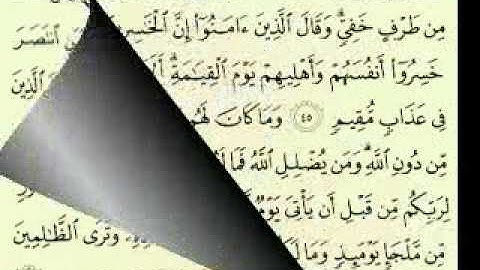 مِن طَرْفٍ خَفِيٍّ ۗ وَقَالَ ٱلَّذِينَ ءَامَنُوٓا۟ إِنَّ ٱنتَصَرَ
خَسِرُوٓا۟ أَنفُسَهُمْ وَأَهْلِيهِمْ يَوْمَ ٱلْقِيَـٰمَةِ ۗ ٱلَّذِينَ
فِى عَذَابٍ مُّقِيمٍ ٤٥ وَمَا كَانَ
مِّن دُونِ ٱللَّهِ ۗ وَمَن يُضْلِلِ ٱللَّهُ فَمَا
لِرَبِّكُم مِّن قَبْلِ أَن يَأْتِىَ يَوْمٌ
مِّن مَّلْجَإٍ يَوْمَئِذٍ وَمَا وَتَرَى ٱلظَّـٰلِمِينَ